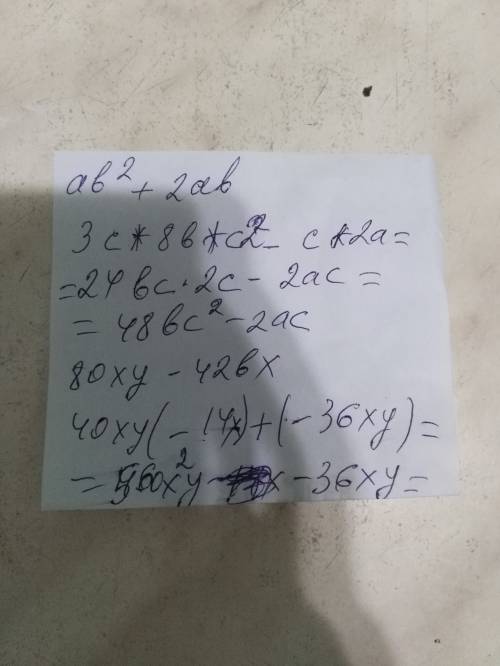 ab² + 2ab
3c * 8b * c2 - c * 2a =
= 24bc · 2c - 2ac =
= 48bc² - 2ac
80xy - 42bx
40xy(-14x) + (-36xy) =
= 560x²y - x - 36xy =